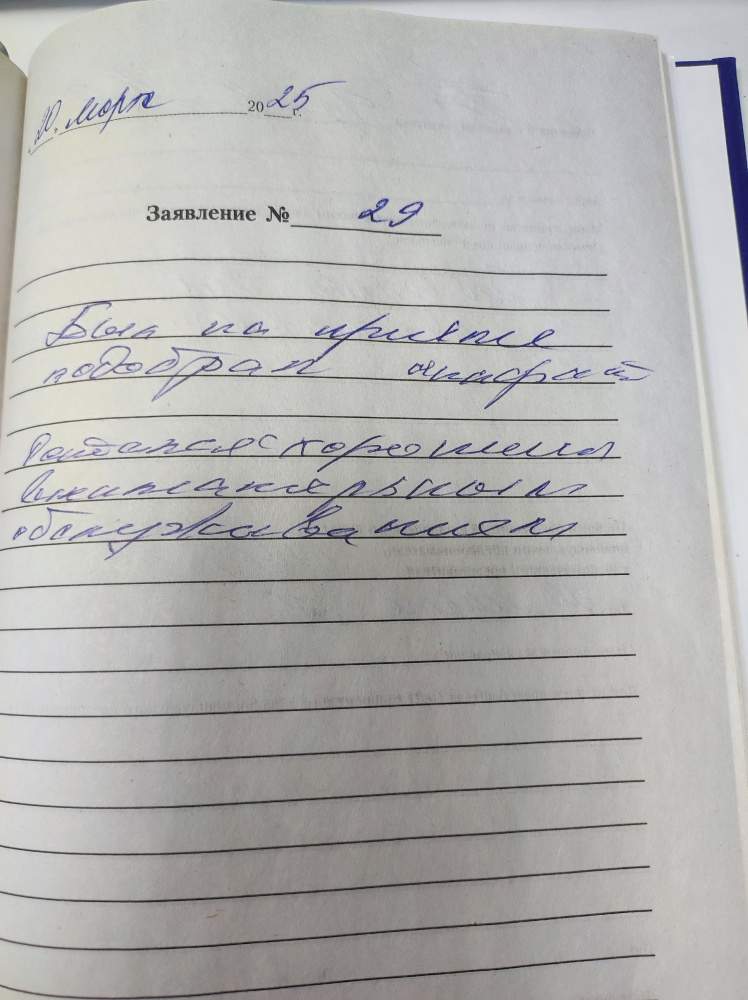 20. марта 2025 г.
Заявление № 29
Был на приёме
подобрал апарат
с хорошим
внимательным
обслуживанием